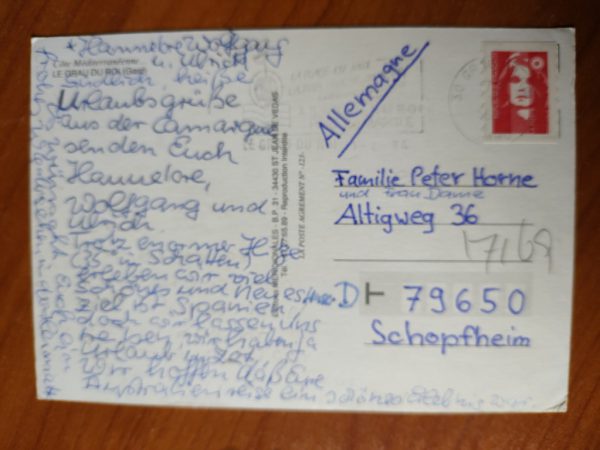 * Hannelore Wolfgang
u. Ulrich
Côte Méditerranéenne...
LE GRAU DU ROI (Gard)
Südlich, heiße
Urlaubsgrüße
aus der Camargue
senden Euch
Hannelore,
Wolfgang und
Ulrich.
Trotz enormer Hitze
(35° im Schatten)
erleben wir viel
Schönes und Neues
Ziel ist Spanien,
doch wir lassen uns
treiben, wir haben ja
Urlaub u. Zeit.
Wir hoffen daß Eure
Australienreise ein schönes Erlebnis war.
MERIDIONALES - B.P. 31 - 34430 ST JEAN DE VEDAS
Reproduction interdite
LA POSTE AGREMENT N° -125-
Allemagne
Familie Peter Horne
und Frau Danne
Altigweg 36
17/68
D - 79650
Schopfheim